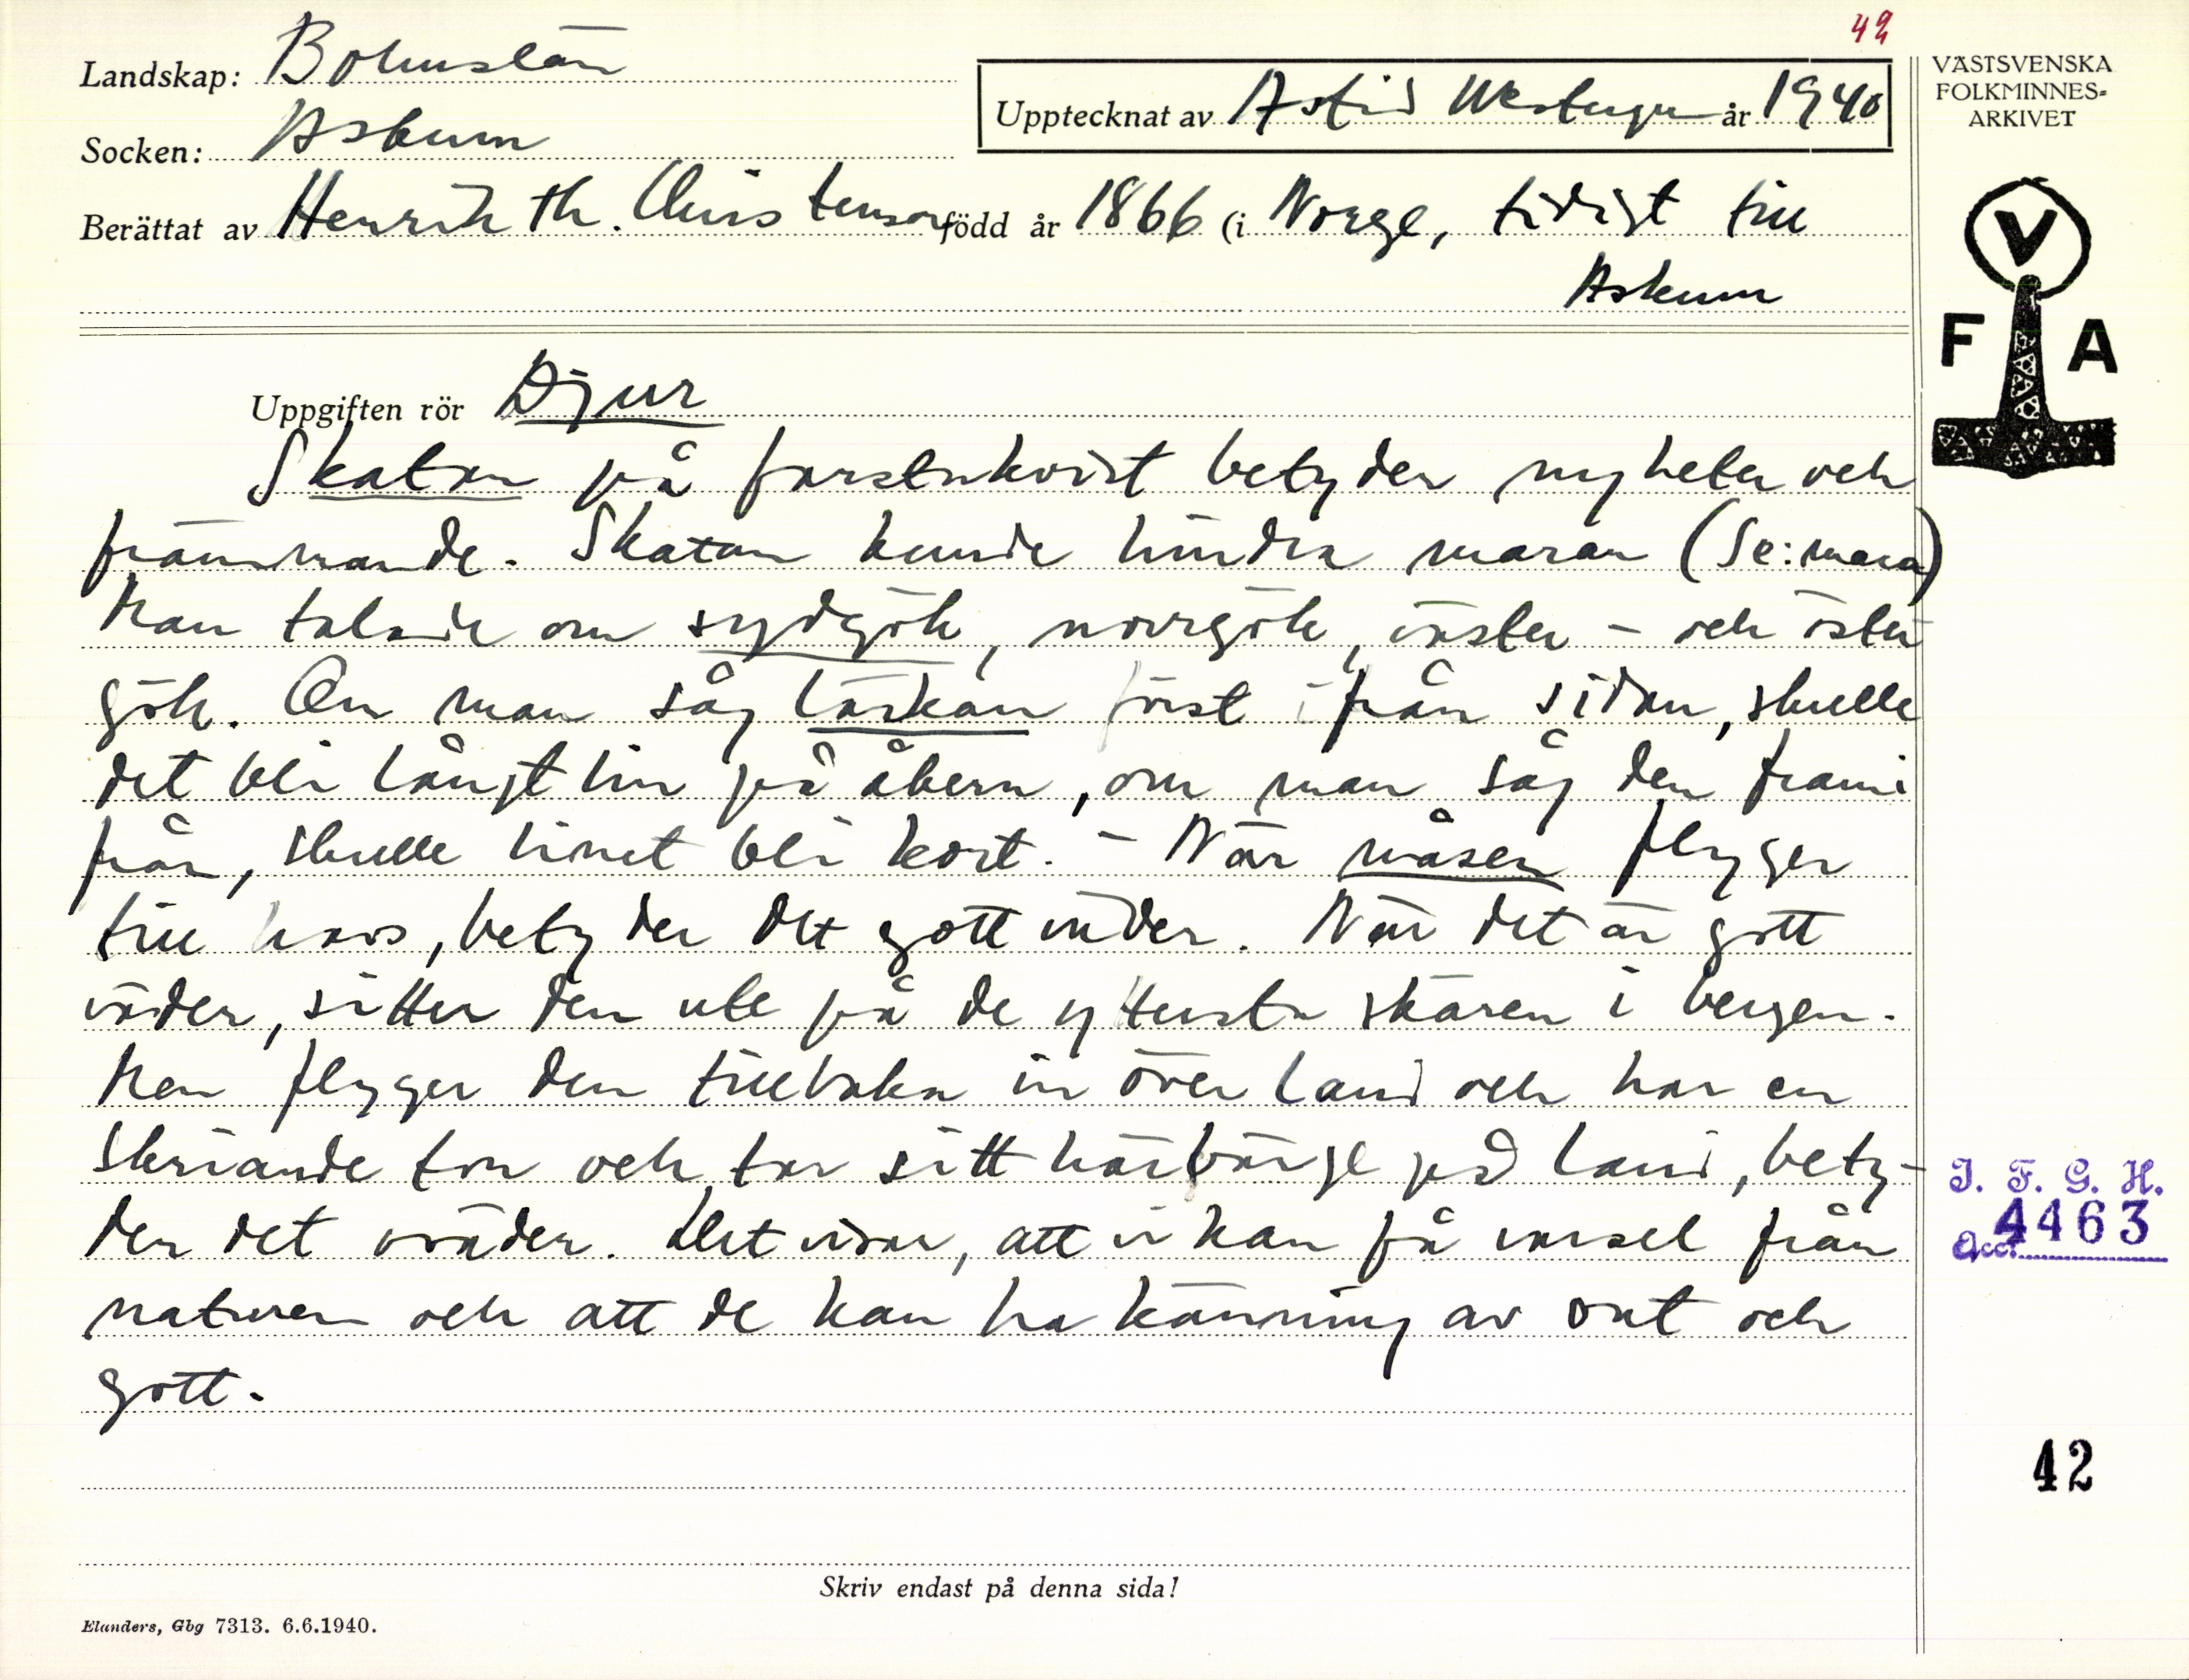 42
Landskap: Bohuslän
Upptecknat av Astrid år 1940
VÄSTSVENSKA
FOLKMINNES-
ARKIVET
Socken: Askum
Berättat av Henrik Th. Christenson född år 1866 (i Norge, tidigt till
Askum
V
F A
Uppgiften rör Djur
Skatan på farstukvist betyder nyheter och
främmande. Skatan kunde hindra maran (Se: mara)
Man talade om sydgök, norrgök, väster- och öster
gök. Om man såg lärkan först ifrån sidan, skulle
det bli långt lin på åkern, om man såg den frami
från, skulle linet bli kort. - När måsen flyger
till havs, betyder det gott väder. När det är gott
väder, sitter den ute på de yttersta skären i bergen.
Men flyger den tillbaka in över land och har en
skriande ton och tar sitt härbärge på land, bety-
der det oväder. Det visar, att vi kan få varsel från
naturen och att de kan ha känning av ont och
gott.
I. F. G. H.
Acc. 4463
42
Skriv endast på denna sida!
Elanders, Gbg 7313. 6.6.1940.